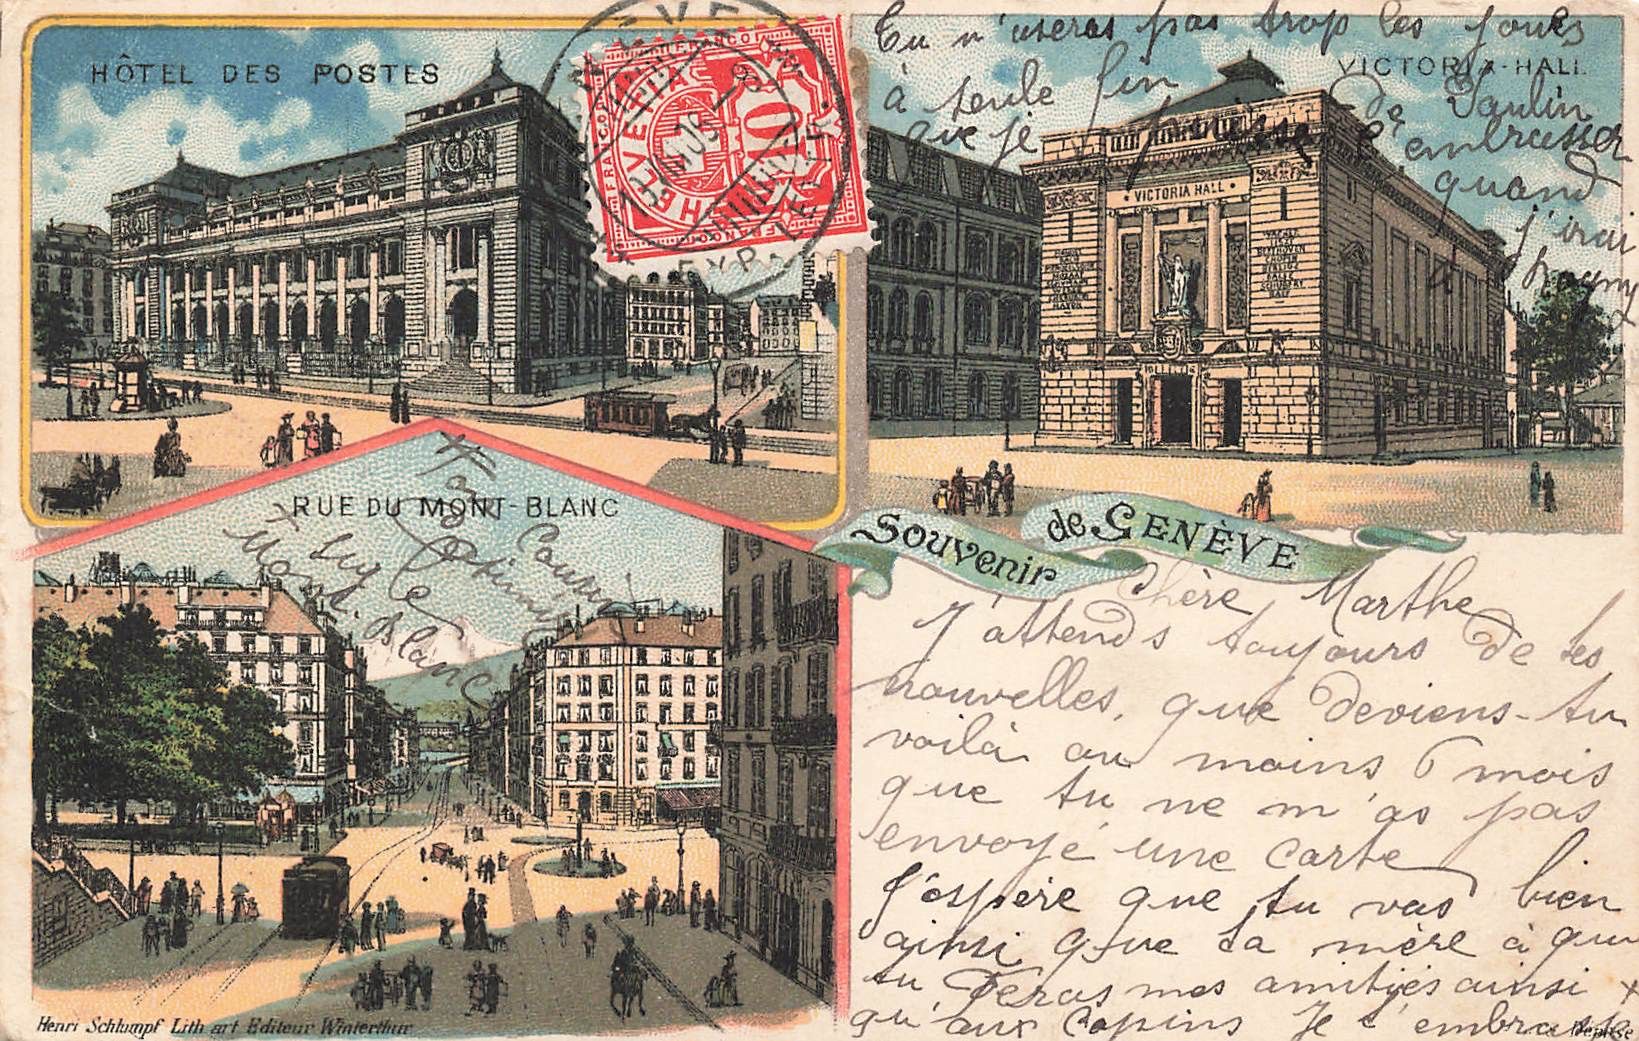 HÔTEL DES POSTES
FRANCO
HELVETIA
10
EXP. LETTR.
VICTORIA-HALL
VICTORIA HALL
Tu n'useras pas trop les joues
à seule fin de Paulin
que je puisse l'embrasser
quand
j'irai
à
RUE DU MONT-BLANC
Souvenir de GENÈVE
+ Ton
Cousin
+ sur le
Mont. Blanc
Chère Marthe
J'attends toujours de tes
nouvelles, que deviens-tu
voilà au moins 6 mois
que tu ne m'as pas
envoyé une carte
J'espère que tu vas bien
ainsi que ta mère à qui
tu feras mes amitiés ainsi +
qu'aux copins Je t'embrasse
Henri Schlumpf Lith art Editeur Winterthur
Déposé